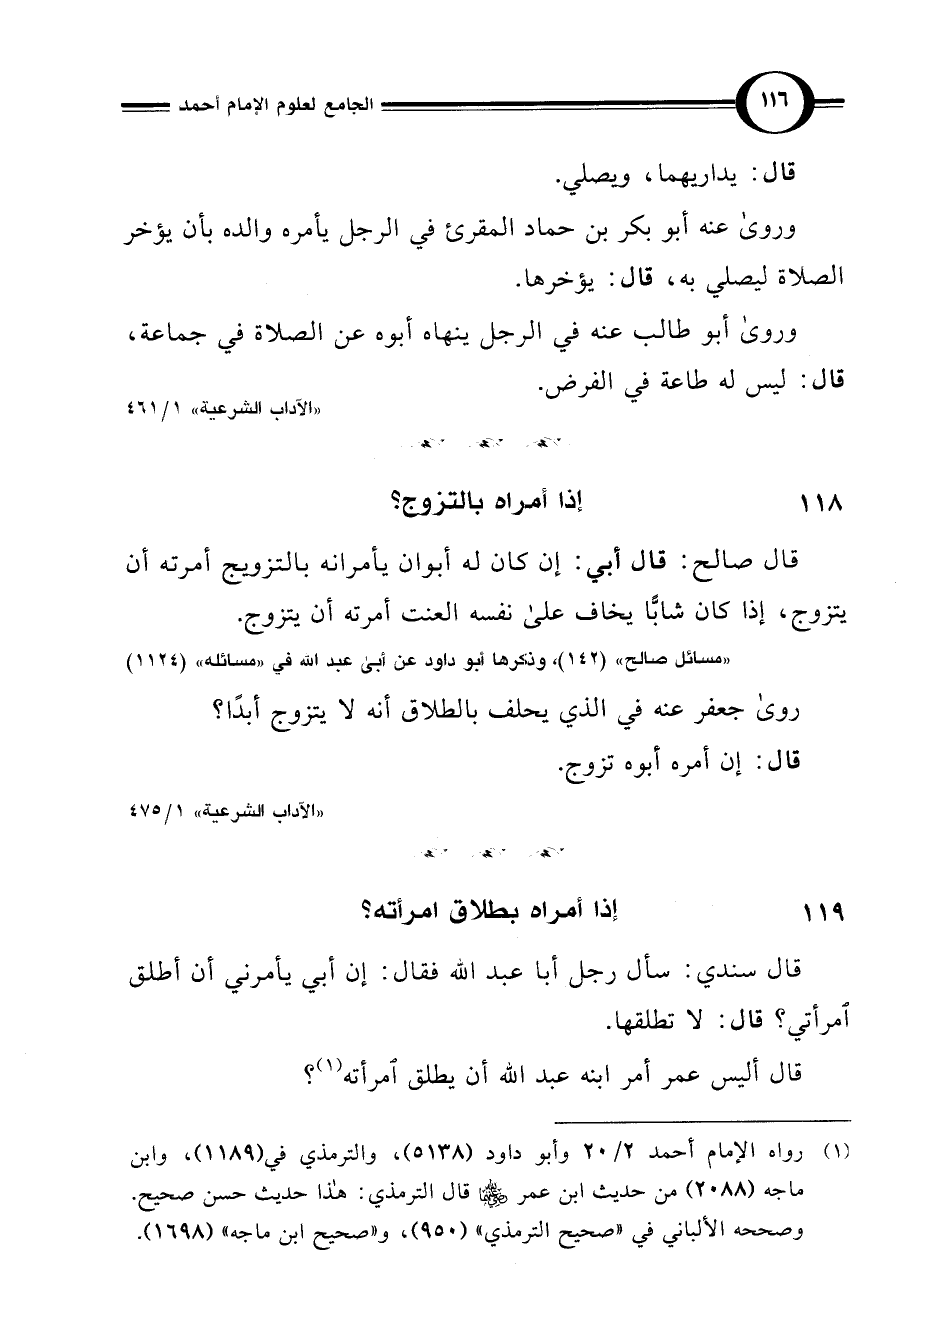 ١١٦ الجامع لعلوم الإمام أحمد
قال: يداريهما، ويصلي.
وروىٰ عنه أبو بكر بن حماد المقرئ في الرجل يأمره والده بأن يؤخر
الصلاة ليصلي به، قال: يؤخرها.
وروىٰ أبو طالب عنه في الرجل ينهاه أبوه عن الصلاة في جماعة،
قال: ليس له طاعة في الفرض.
«الآداب الشرعية» ١/ ٤٦١
١١٨ إذا أمراه بالتزوج؟
قال صالح: قال أبي: إن كان له أبوان يأمرانه بالتزويج أمرته أن
يتزوج، إذا كان شابًّا يخاف علىٰ نفسه العنت أمرته أن يتزوج.
«مسائل صالح» (١٤٢)، وذكرها أبو داود عن أبىٰ عبد الله في «مسائله» (١١٢٤)
روىٰ جعفر عنه في الذي يحلف بالطلاق أنه لا يتزوج أبدًا؟
قال: إن أمره أبوه تزوج.
«الآداب الشرعية» ١/ ٤٧٥
١١٩ إذا أمراه بطلاق امرأته؟
قال سندي: سأل رجل أبا عبد الله فقال: إن أبي يأمرني أن أطلق
ٱمرأتي؟ قال: لا تطلقها.
قال أليس عمر أمر ابنه عبد الله أن يطلق ٱمرأته(١)؟
(١) رواه الإمام أحمد ٢/ ٢٠ وأبو داود (٥١٣٨)، والترمذي في(١١٨٩)، وابن
ماجه (٢٠٨٨) من حديث ابن عمر رضي الله عنهما قال الترمذي: هٰذا حديث حسن صحيح.
وصححه الألباني في «صحيح الترمذي» (٩٥٠)، و«صحيح ابن ماجه» (١٦٩٨).